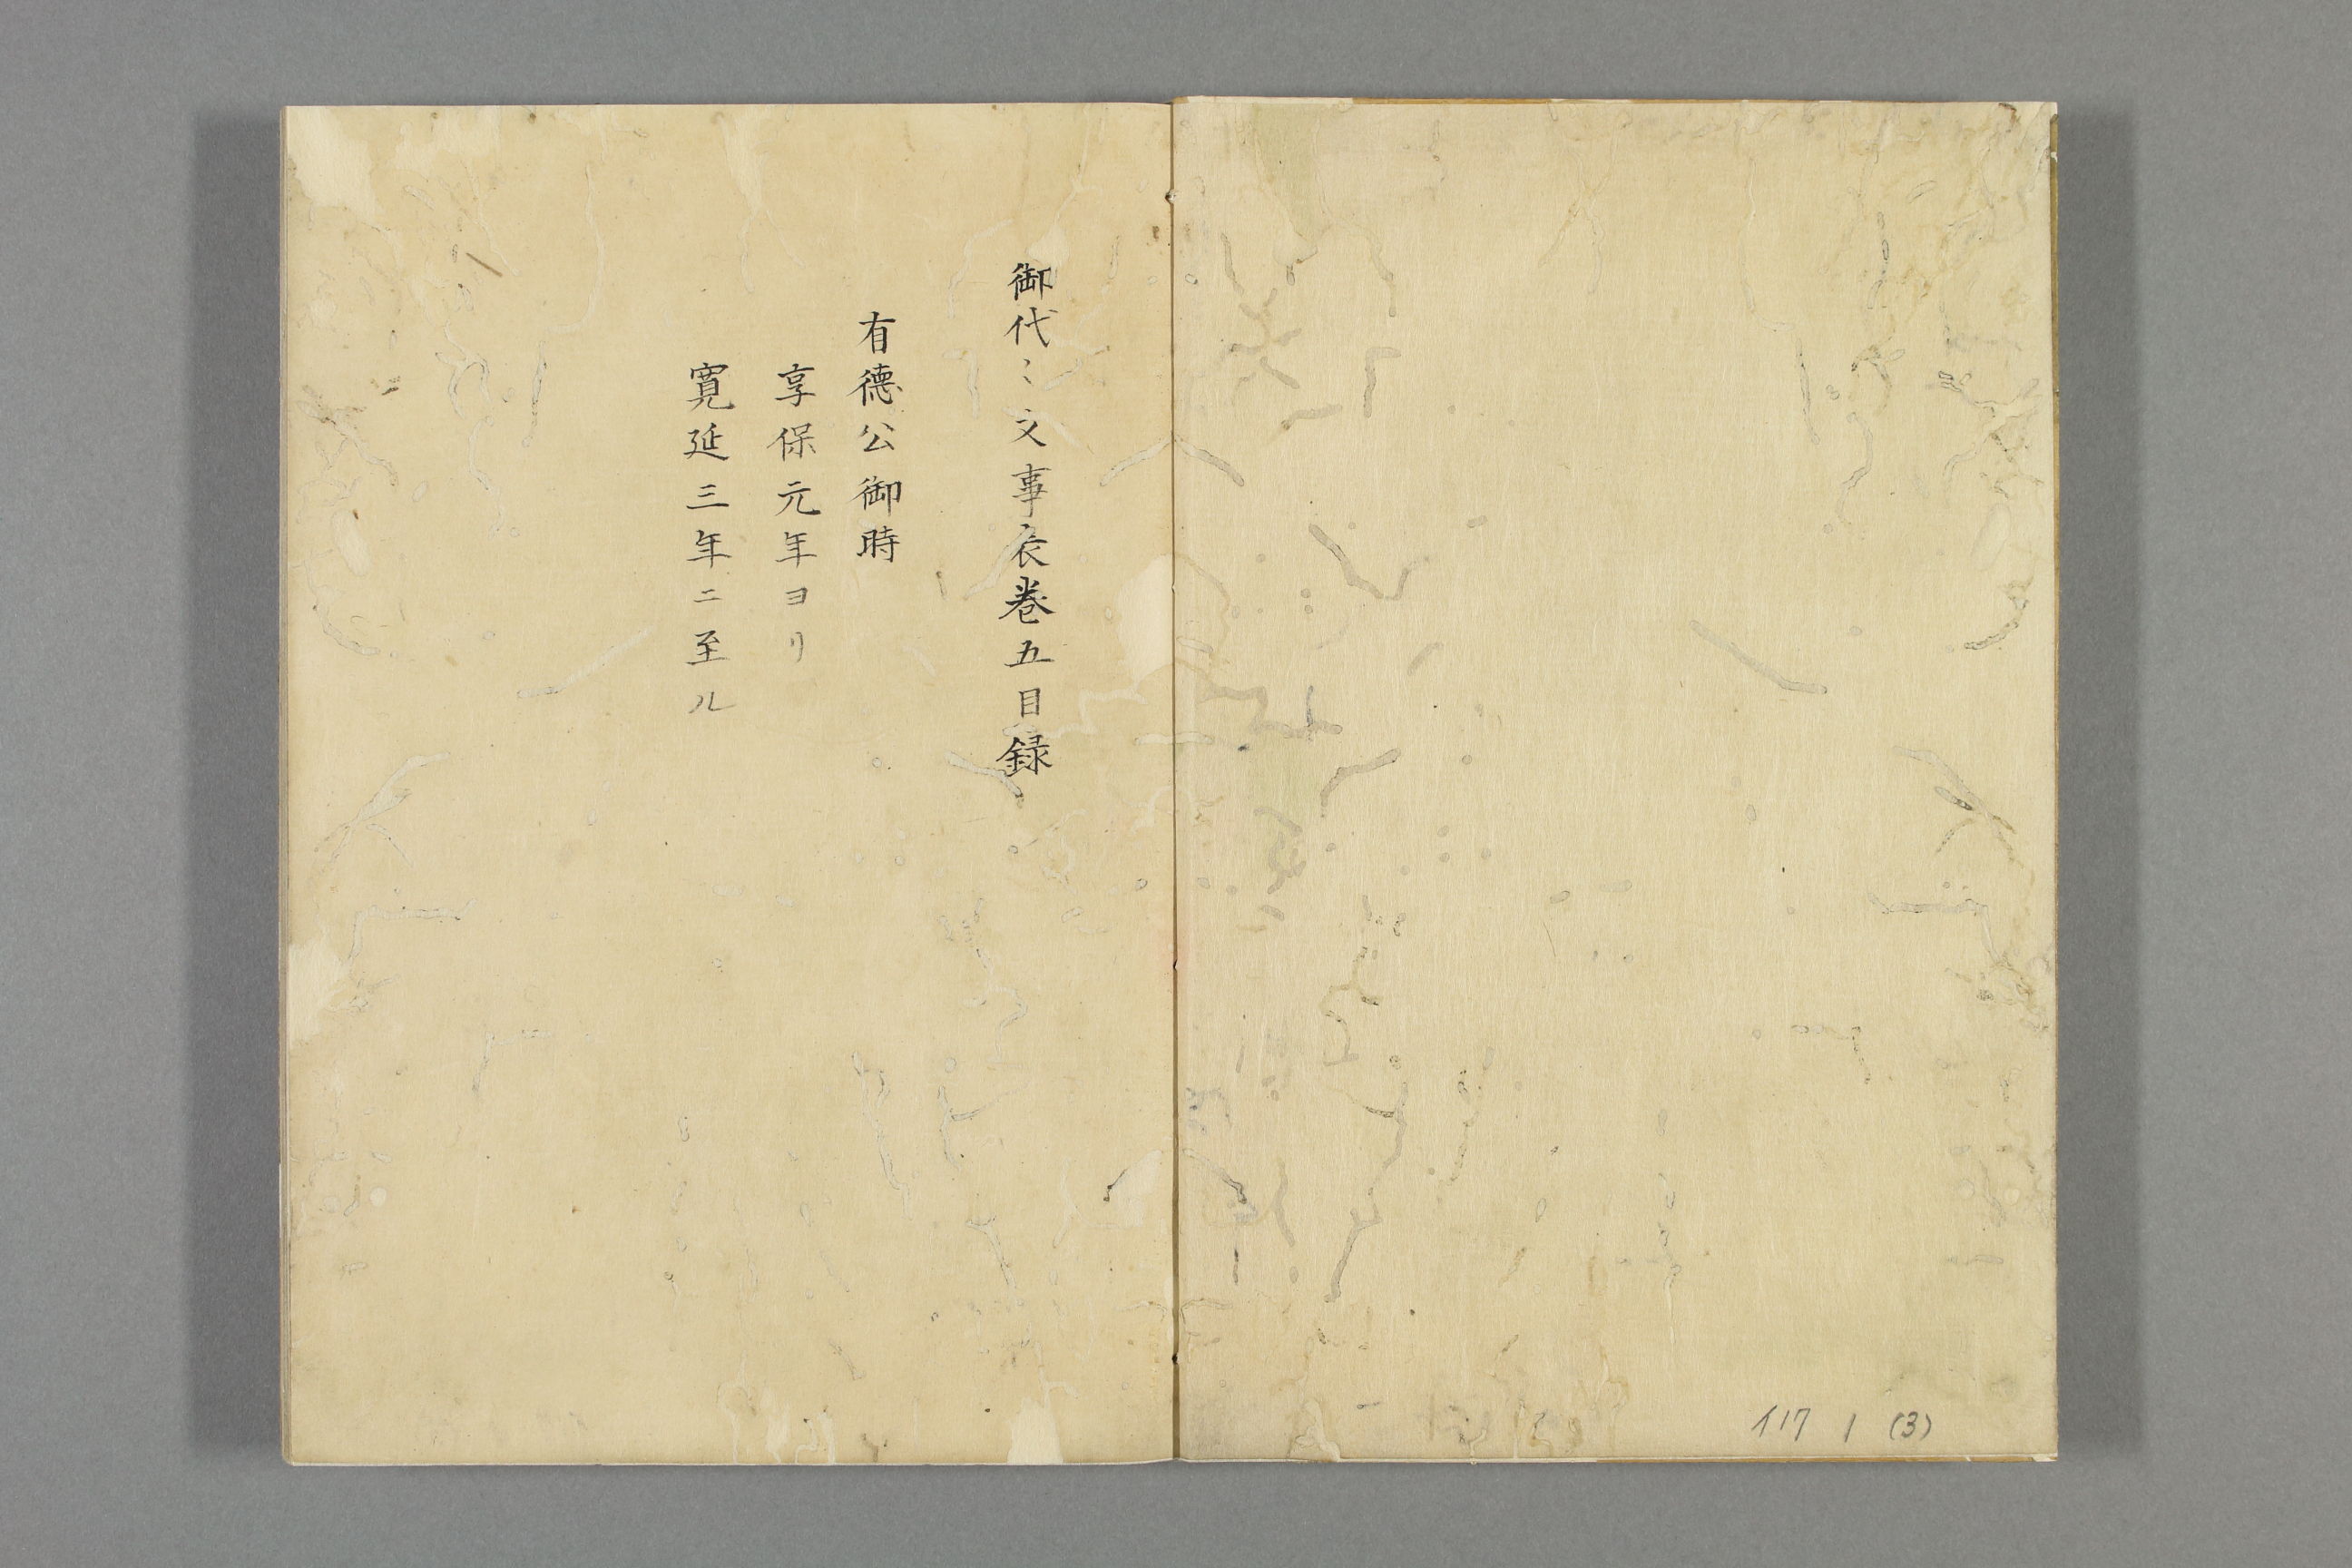 御代〻文事表巻五目録
有徳公御時
享保元年ヨリ
寛延三年ニ至ル
イ17 1 (3)